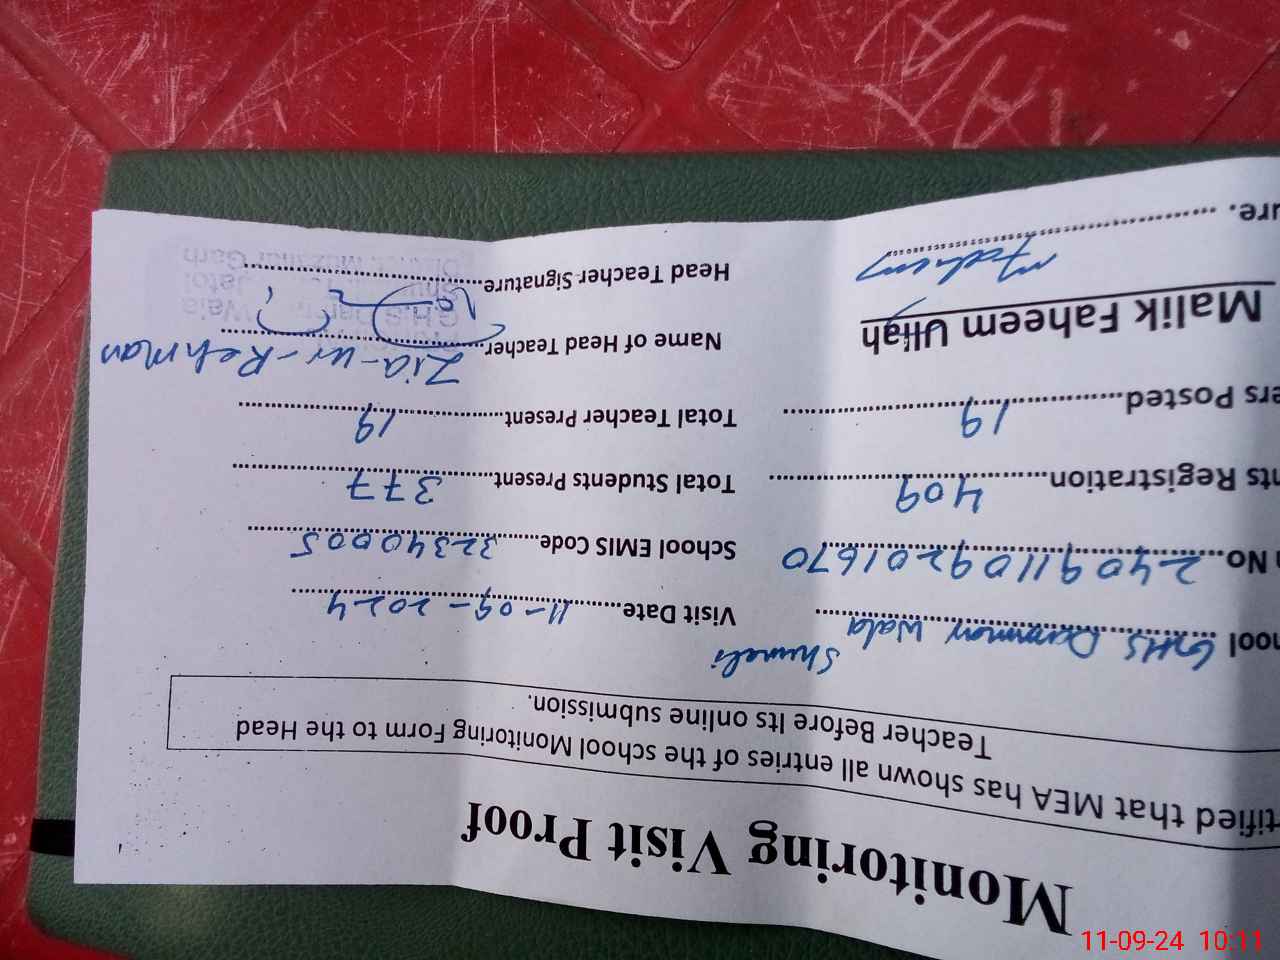 Monitoring Visit Proof
tified that MEA has shown all entries of the school Monitoring Form to the Head
Teacher Before Its online submission.
ool GHS Dammar Wala Shumali
Visit Date 11-09-2024
No 24091109201670
School EMIS Code 32340005
nts Registration 409
Total Students Present 377
ers Posted 19
Total Teacher Present 19
Malik Faheem Ullah
Name of Head Teacher Zia-ur-Rehman
ure. Faheem
Head Teacher Signature
11-09-24 10:11